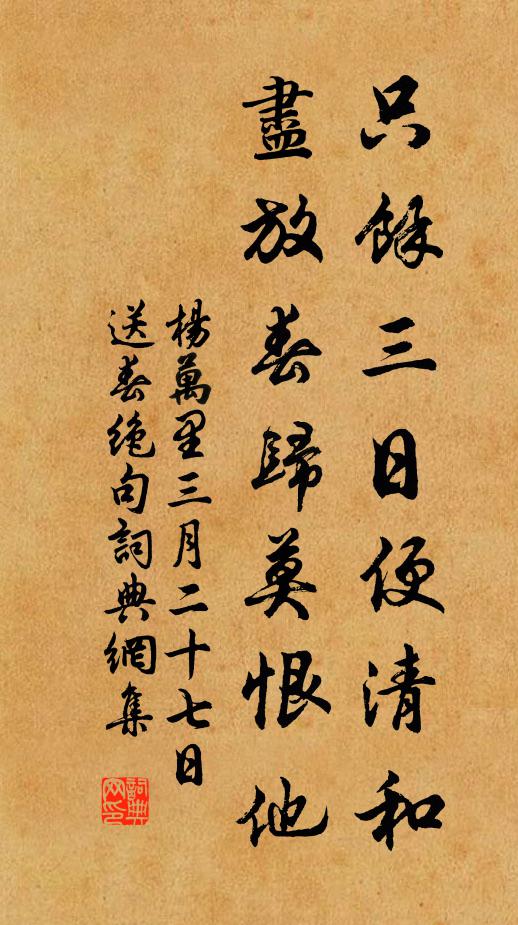 只餘三日便清和
盡放春歸莫恨他
楊萬里三月二十七日
送春絕句詞典網集
詞典网印